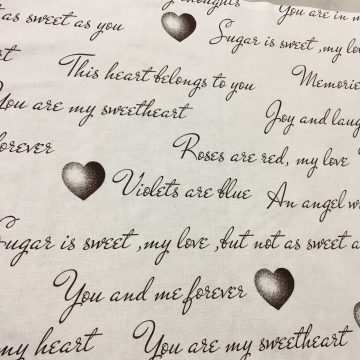 thoughts
You are in m
as sweet as you
Sugar is sweet ,my lov
This heart belongs to you
Memories
You are my sweetheart
Joy and laug
forever
Roses are red, my love
Violets are blue
An angel w
Sugar is sweet ,my love ,but not as sweet a
You and me forever
my heart
You are my sweetheart